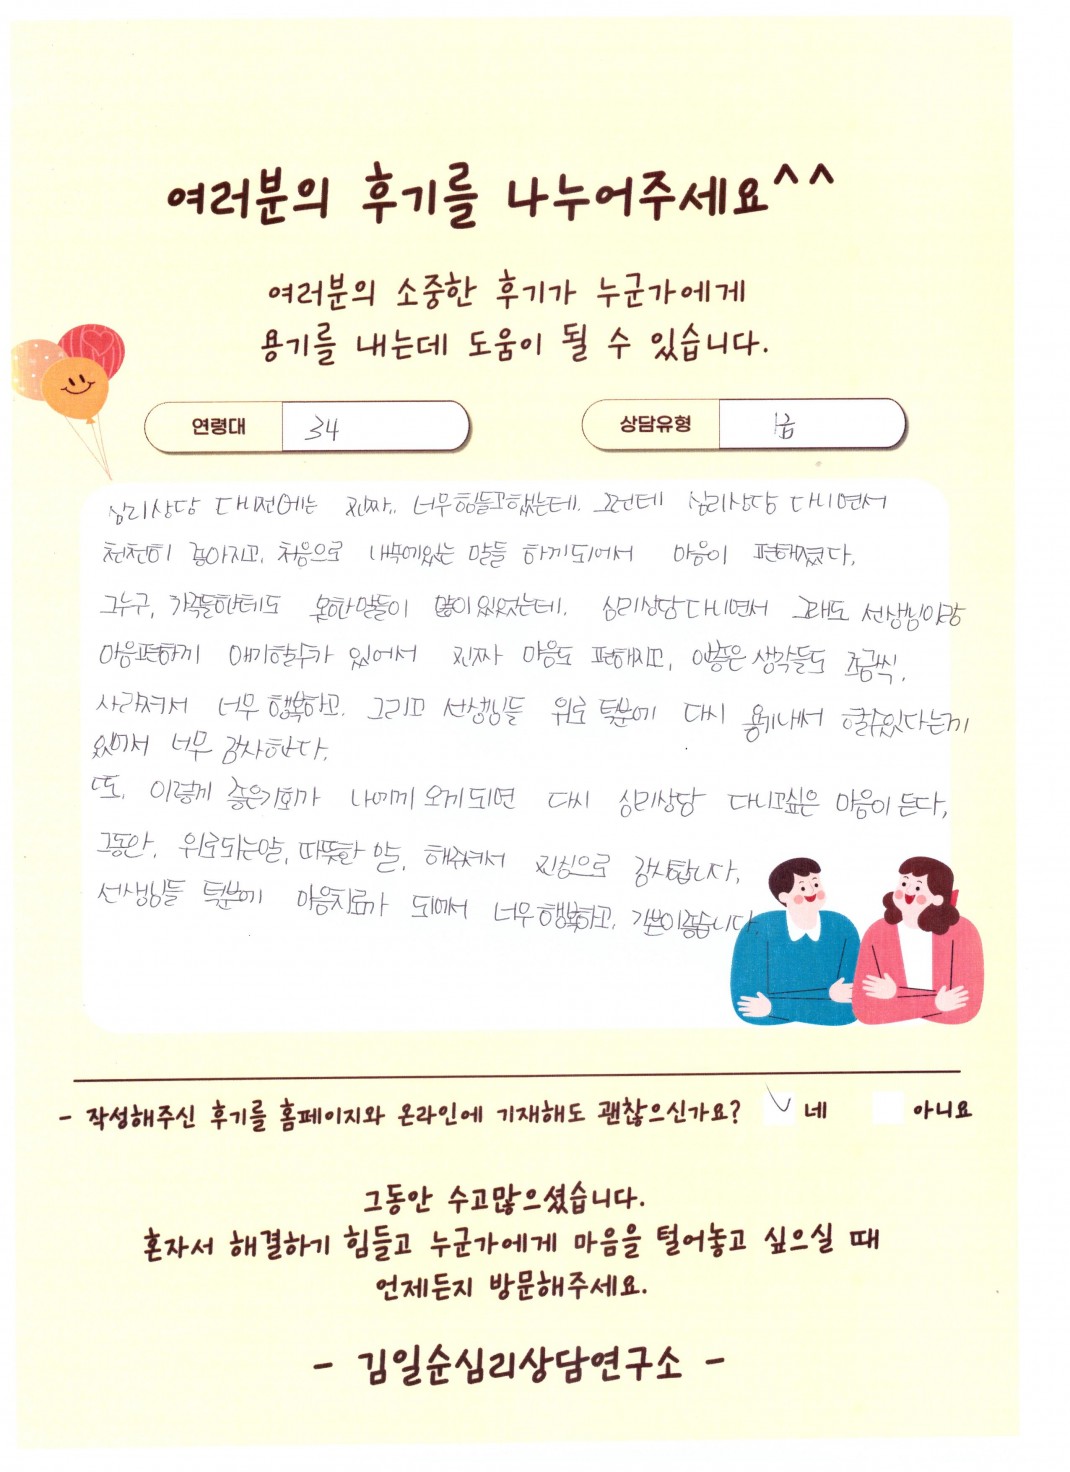 여러분의 후기를 나누어주세요^^
여러분의 소중한 후기가 누군가에게
용기를 내는데 도움이 될 수 있습니다.
연령대 34 상담유형
심리상담 다니전에는 진짜.. 너무 힘들고했는데. 그런테 심리상담 다니면서
천천히 좋아지고, 처음으로 내속에있는 말들 하게되어서 마음이 편해졌다.
그누구, 가족들한테도 못한말들이 많이있었는데. 심리상담다니면서 그래도 선생님이랑
마음편하게 얘기할수가 있어서 진짜 마음도 편해지고, 안좋은 생각들도 조금씩.
사라져서 너무 행복하고. 그리고 선생님들 위로 턱분에 다시 용기내서 할수있다는게
있어서 너무 감사한다.
또, 이렇게 좋은기회가 나에게 오게되면 다시 심리상담 다니고싶은 마음이 든다,
그동안, 위로되는말, 따뜻한 말, 해주셔서 진심으로 감사합니다,
선생님들 턱분에 마음치료가 되어서 너무 행복하고, 기분이좋습니다.
- 작성해주신 후기를 홈페이지와 온라인에 기재해도 괜찮으신가요? 네 아니요
그동안 수고많으셨습니다.
혼자서 해결하기 힘들고 누군가에게 마음을 털어놓고 싶으실 때
언제든지 방문해주세요.
- 김일순심리상담연구소 -